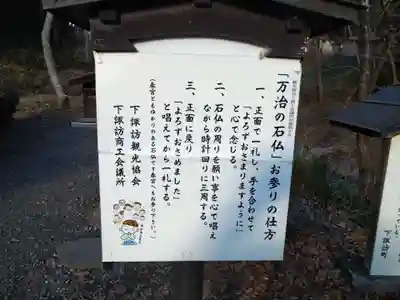 「万治の石仏」お参りの仕方
一、正面で一礼し、手を合わせて
「よろずおさまりますように」
と心で念じる。
二、石仏の周りを願い事を心で唱え
ながら時計回りに三周する。
三、正面に戻り
「よろずおさめました」
と唱えてから一礼する。
下諏訪観光協会
下諏訪商工会議所
下諏訪町